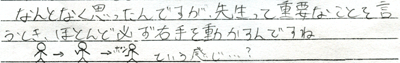 なんとなく思ったんですが、先生って重要なことを言
うとき、ほとんど必ず右手を動かすんですね
→ → という感じ…?